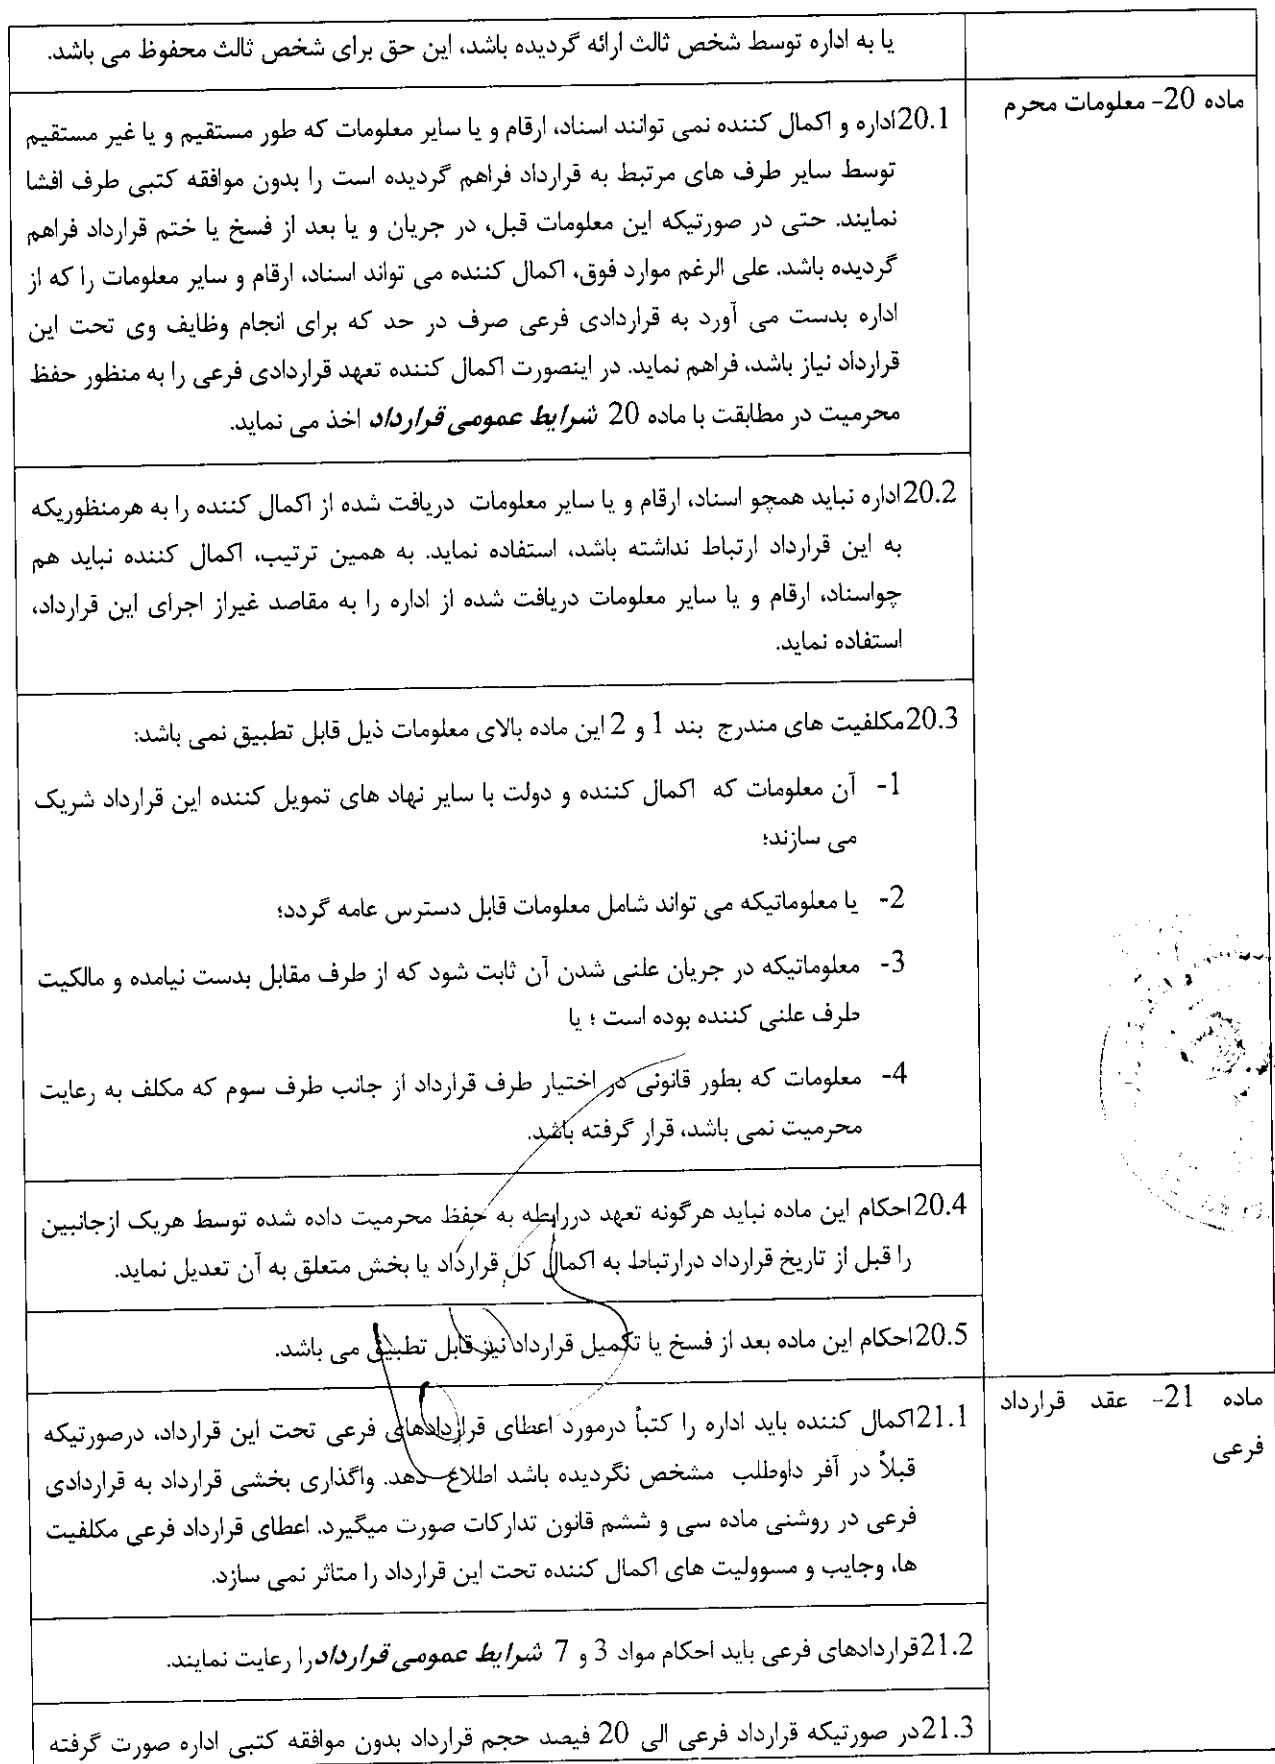 یا به اداره توسط شخص ثالث ارائه گردیده باشد، این حق برای شخص ثالث محفوظ می باشد.
ماده 20- معلومات محرم
20.1اداره و اکمال کننده نمی توانند اسناد، ارقام و یا سایر معلومات که طور مستقیم و یا غیر مستقیم
توسط سایر طرف های مرتبط به قرارداد فراهم گردیده است را بدون موافقه کتبی طرف افشا
نمایند. حتی در صورتیکه این معلومات قبل، در جریان و یا بعد از فسخ یا ختم قرارداد فراهم
گردیده باشد. علی الرغم موارد فوق، اکمال کننده می تواند اسناد، ارقام و سایر معلومات را که از
اداره بدست می آورد به قراردادی فرعی صرف در حد که برای انجام وظایف وی تحت این
قرارداد نیاز باشد، فراهم نماید. در اینصورت اکمال کننده تعهد قراردادی فرعی را به منظور حفظ
محرمیت در مطابقت با ماده 20 شرایط عمومی قرارداد اخذ می نماید.
20.2اداره نباید همچو اسناد، ارقام و یا سایر معلومات دریافت شده از اکمال کننده را به هرمنظوریکه
به این قرارداد ارتباط نداشته باشد، استفاده نماید. به همین ترتیب، اکمال کننده نباید هم
چواسناد، ارقام و یا سایر معلومات دریافت شده از اداره را به مقاصد غیراز اجرای این قرارداد،
استفاده نماید.
20.3مکلفیت های مندرج بند 1 و 2 این ماده بالای معلومات ذیل قابل تطبیق نمی باشد:
1- آن معلومات که اکمال کننده و دولت با سایر نهاد های تمویل کننده این قرارداد شریک
می سازند؛
2- یا معلوماتیکه می تواند شامل معلومات قابل دسترس عامه گردد؛
3- معلوماتیکه در جریان علنی شدن آن ثابت شود که از طرف مقابل بدست نیامده و مالکیت
طرف علنی کننده بوده است ؛ یا
4- معلومات که بطور قانونی در اختیار طرف قرارداد از جانب طرف سوم که مکلف به رعایت
محرمیت نمی باشد، قرار گرفته باشد.
20.4احکام این ماده نباید هرگونه تعهد دررابطه به حفظ محرمیت داده شده توسط هریک ازجانبین
را قبل از تاریخ قرارداد درارتباط به اکمال کل قرارداد یا بخش متعلق به آن تعدیل نماید.
20.5احکام این ماده بعد از فسخ یا تکمیل قرارداد نیز قابل تطبیق می باشد.
ماده 21- عقد قرارداد
فرعی
21.1اکمال کننده باید اداره را کتباً درمورد اعطای قراردادهای فرعی تحت این قرارداد، درصورتیکه
قبلاً در آفر داوطلب مشخص نگردیده باشد اطلاع دهد. واگذاری بخشی قرارداد به قراردادی
فرعی در روشنی ماده سی و ششم قانون تدارکات صورت میگیرد. اعطای قرارداد فرعی مکلفیت
ها، وجایب و مسوولیت های اکمال کننده تحت این قرارداد را متاثر نمی سازد.
21.2قراردادهای فرعی باید احکام مواد 3 و 7 شرایط عمومی قرارداد را رعایت نمایند.
21.3در صورتیکه قرارداد فرعی الی 20 فیصد حجم قرارداد بدون موافقه کتبی اداره صورت گرفته